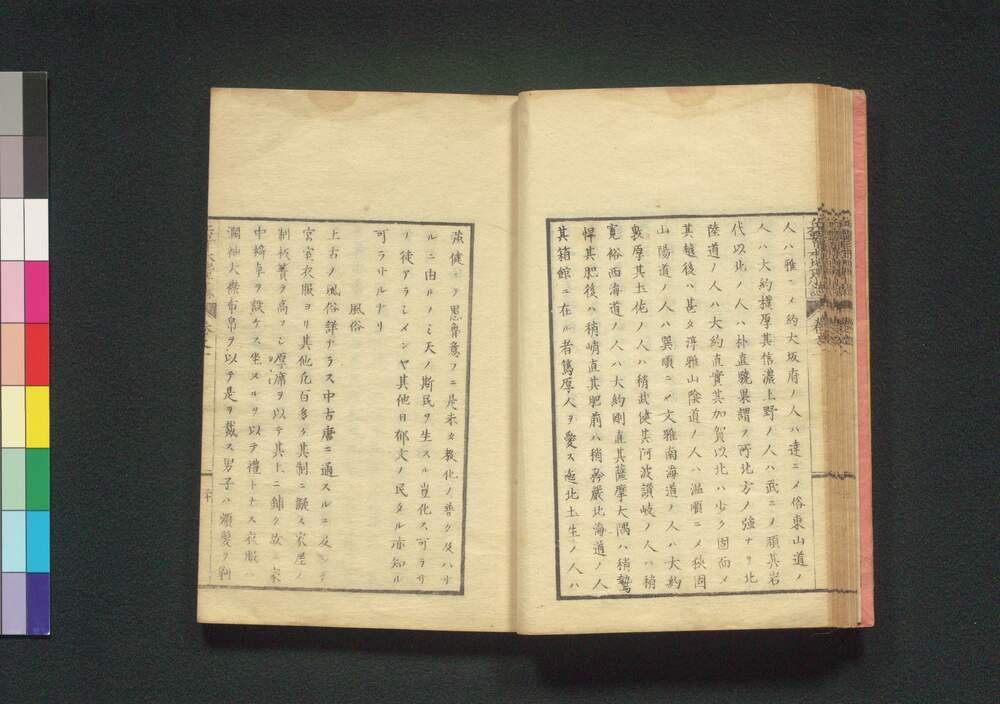 人ハ雅ニメ約大坂府ノ人ハ達ニメ俗東山道ノ
人ハ大約撲厚其信濃上野ノ人ハ武ニメ頑其岩
代以北ノ人ハ朴直驍果謂ヲ所北方ノ強ナリ北
陸道ノ人ハ大約直實其加賀以北ハ少ク固而メ
其越後ハ甚タ淳雅山陰道ノ人ハ温順ニメ狹固
山陽道ノ人ハ巽順ニメ文雅南海道ノ人ハ大約
襄厚其土佗ノ人ハ稍武健其阿波讃岐ノ人ハ稍
寛裕西海道ノ人ハ大約剛直其薩摩大隅ハ稍鷙
悍其肥後ハ稍峭直其肥前ハ稍矜嚴北海道ノ人
其箱館ニ在ル者篤厚人ヲ愛ス迤北土生ノ人ハ
強健ニメ思齊意フニ是未タ教化ノ普ク及ハサ
ルニ由ルノミ天ノ斯民ヲ生スル豈化ス可ラサ
ノ徒アラシメンヤ其他日郁文ノ民タル亦知ル
可ラサルナリ
風俗
上古ノ風俗詳ナラス中古唐ニ通スルニ及ンテ
宮室衣服ヨリ其他凡百多ク其制ニ擬ス家屋ノ
制板簀ヲ高フシ厚席ヲ以テ其上ニ鋪ク故ニ家
中椅卓ヲ設ケス坐スルヲ以テ禮トナス衣服ハ
濶袖大襟布帛ヲ以テ是ヲ裁ス男子ハ鬚髮ヲ剃